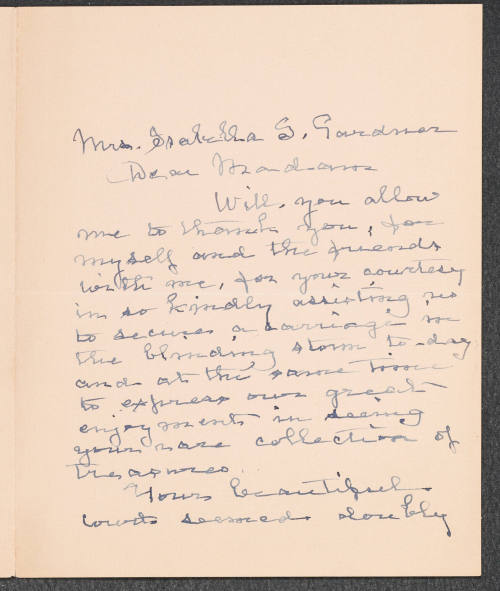 Mrs. Isabella S. Gardner
Dear Madam
Will you allow
me to thank you, for
myself and the friends
with me, for your courtesy
in so kindly assisting us
to secure a carriage in
the blinding storm to-day
and at the same time
to express our great
enjoyment in seeing
your rare collection of
treasures.
Your beautiful
court seemed doubly